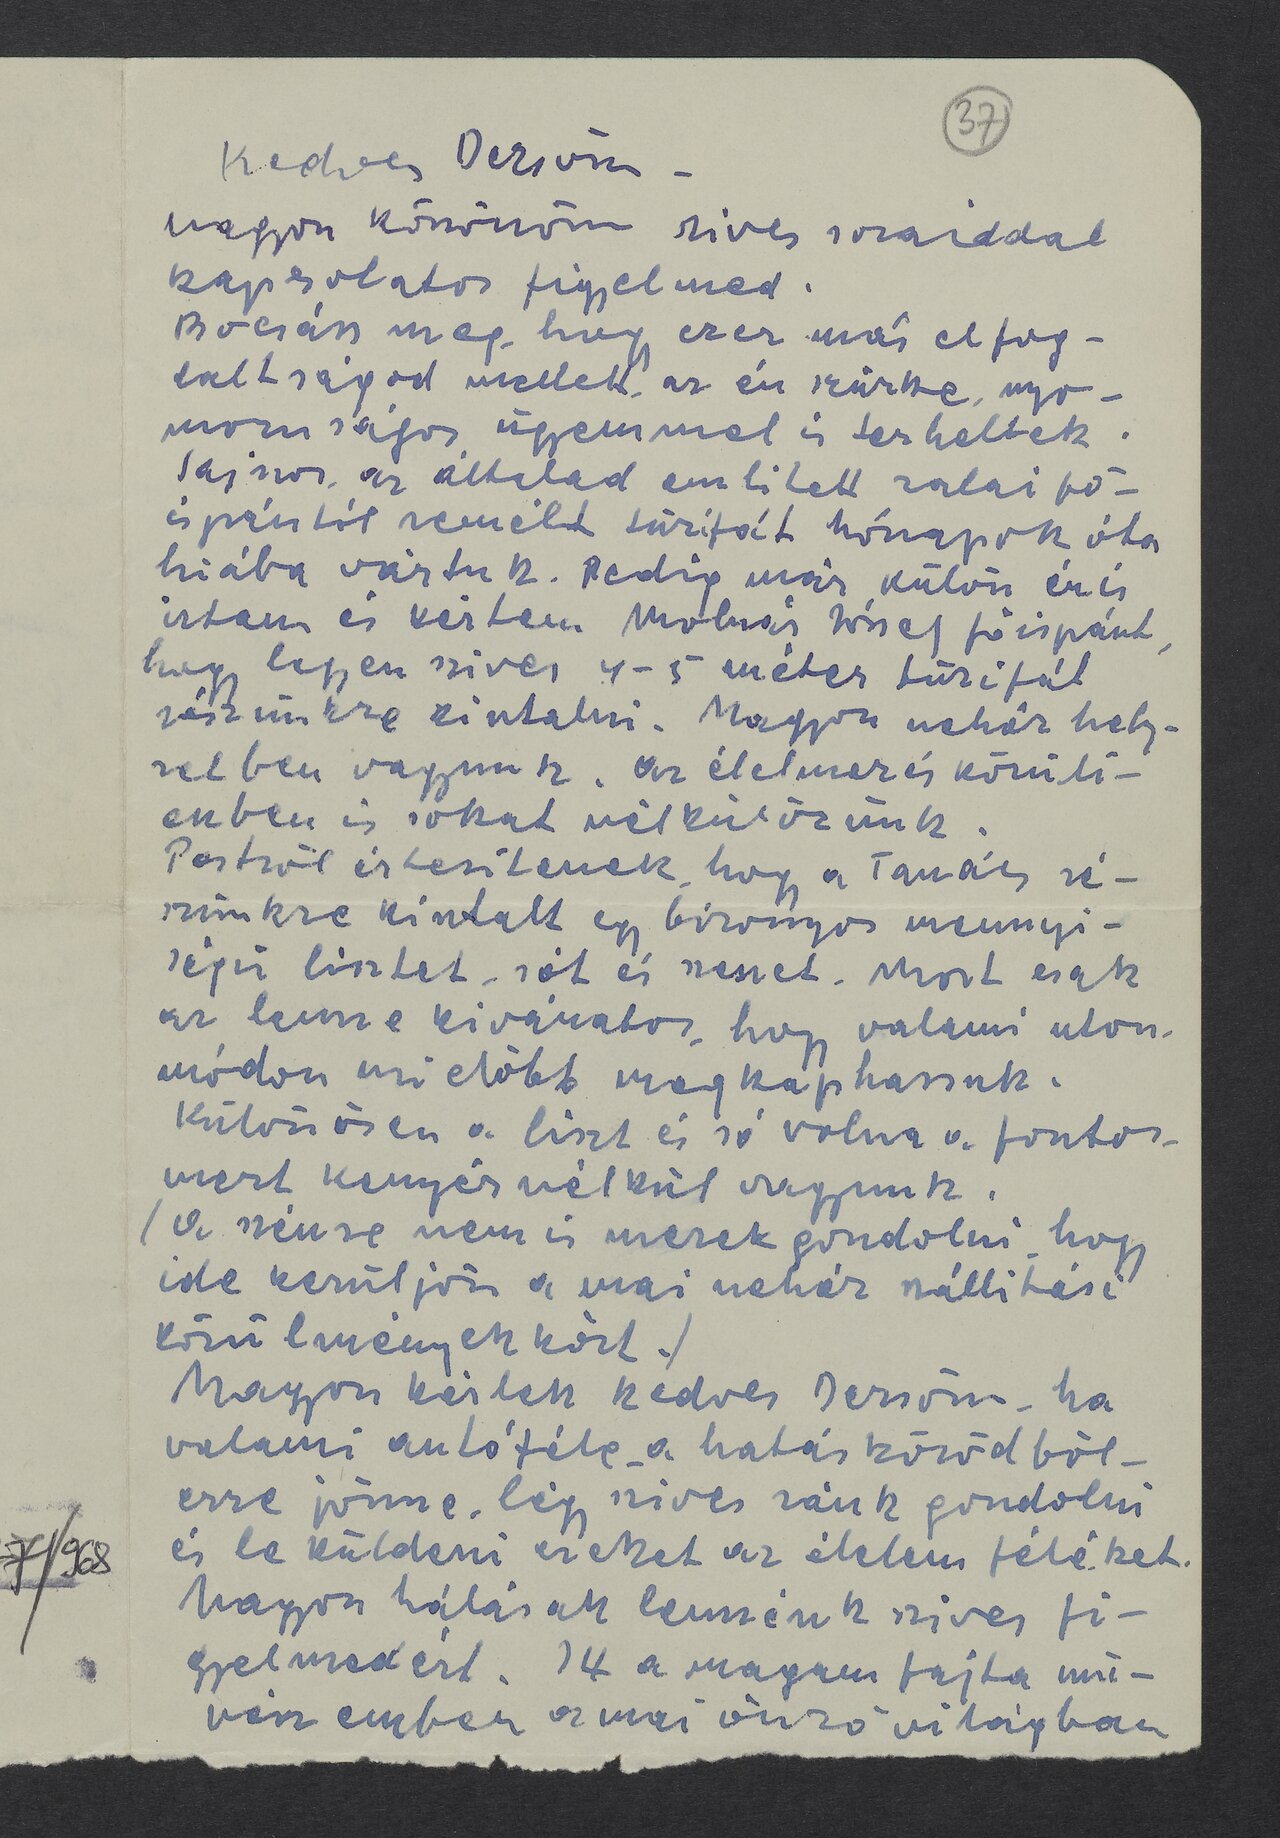 37
Kedves Dersőm -
nagyon köszönöm szives soraiddal
kapcsolatos figyelmed.
Bocsáss meg, hogy ezer más elfog-
laltságod mellett, az én szürke, nyo-
morúságos ügyemmel is terheltek.
Sajnos, az általad emlitett zalai fő-
ispántól remélt tüzifát hónapok óta
hiába vártuk. Pedig már külön én is
irtam és kértem Molnár József főispánt,
hogy legyen szives 4-5 méter tüzifát
részünkre kiutalni. Nagyon nehéz hely-
zetben vagyunk, az élelmezés körüli-
ekben is sokat nélkülözünk.
Pestről értesitenek, hogy a Tanács ré-
szünkre kiutalt egy bizonyos mennyi-
ségü lisztet, sót és szenet. Most csak
az lenne kivánatos, hogy valami uton-
módon mielőbb megkaphassuk.
Különösen a liszt és só volna a fontos-
mert kenyér nélkül vagyunk.
/A szénre nem is merek gondolni, hogy
ide kerüljön a mai nehéz szállitási
körülmények közt./
Nagyon kérlek kedves Dersőm - ha
valami autóféle - a hatáskörödből -
erre jönne, légy szives ránk gondolni
és le küldeni ezeket az élelem féléket.
Nagyon hálásak lennénk szives fi-
gyelmedért. Itt a magam fajta mü-
vész ember a mai önző világban
7/968